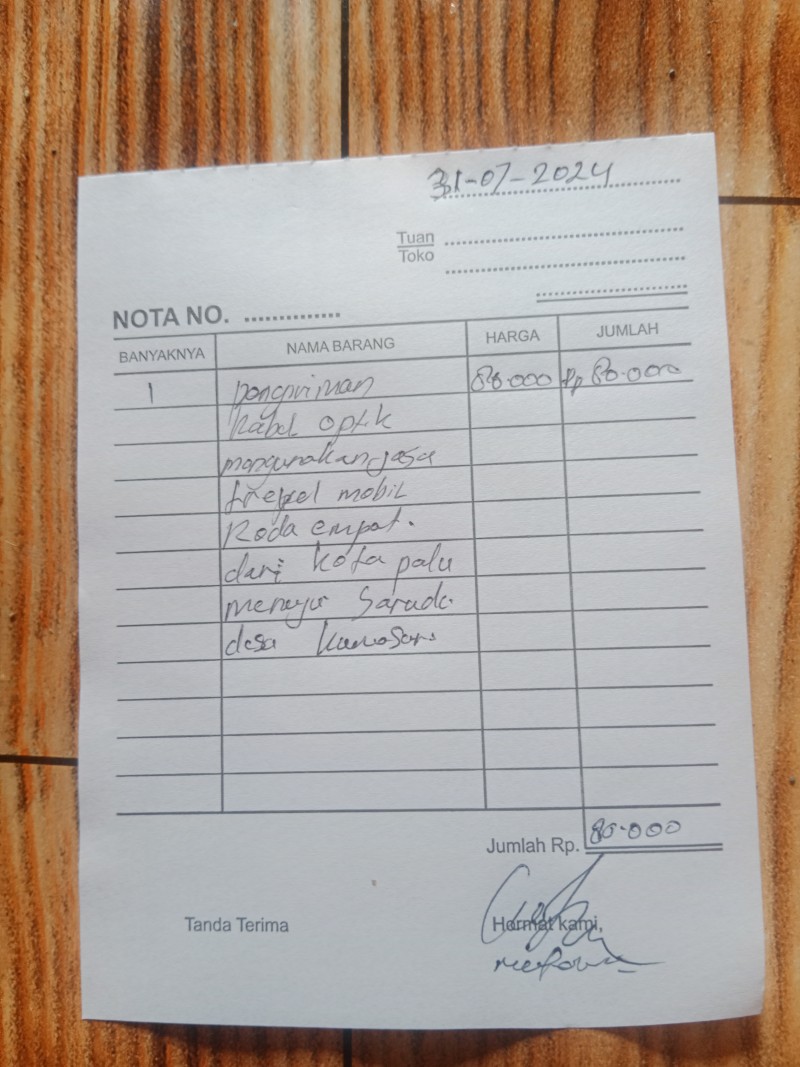 31-07-2024
Tuan
Toko
NOTA NO. ..............
BANYAKNYA NAMA BARANG HARGA JUMLAH
1 pengiriman 80.000 Rp 80.000
kabel optik
mengunakan jasa
trepel mobil
Roda empat.
dari kota palu
menuju Sarudu
desa
Jumlah Rp. 80.000
Tanda Terima Hormat kami,